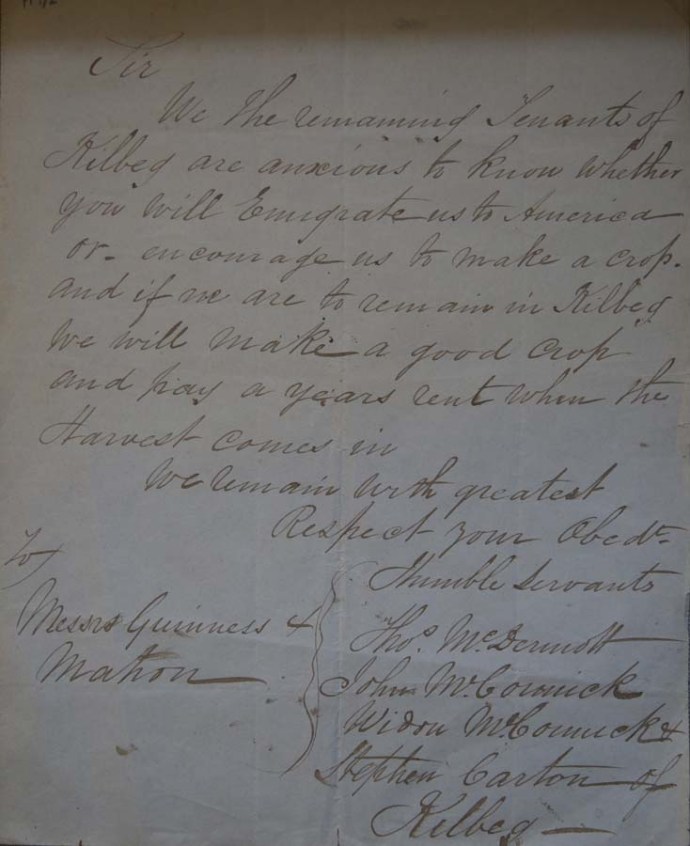 Sir
We the remaining Tenants of
Kilbeg are anxious to know whether
you will Emigrate us to America
or - encourage us to make a crop.
and if we are to remain in Kilbeg
we will make a good crop
and pay a years rent when the
Harvest comes in
We remain with greatest
Respect your Obedt
Humble Servants
To
Messrs Guinness &
Mahon
Thos. McDermott
John McCormick
Widow McCormick &
Stephen Carton of
Kilbeg